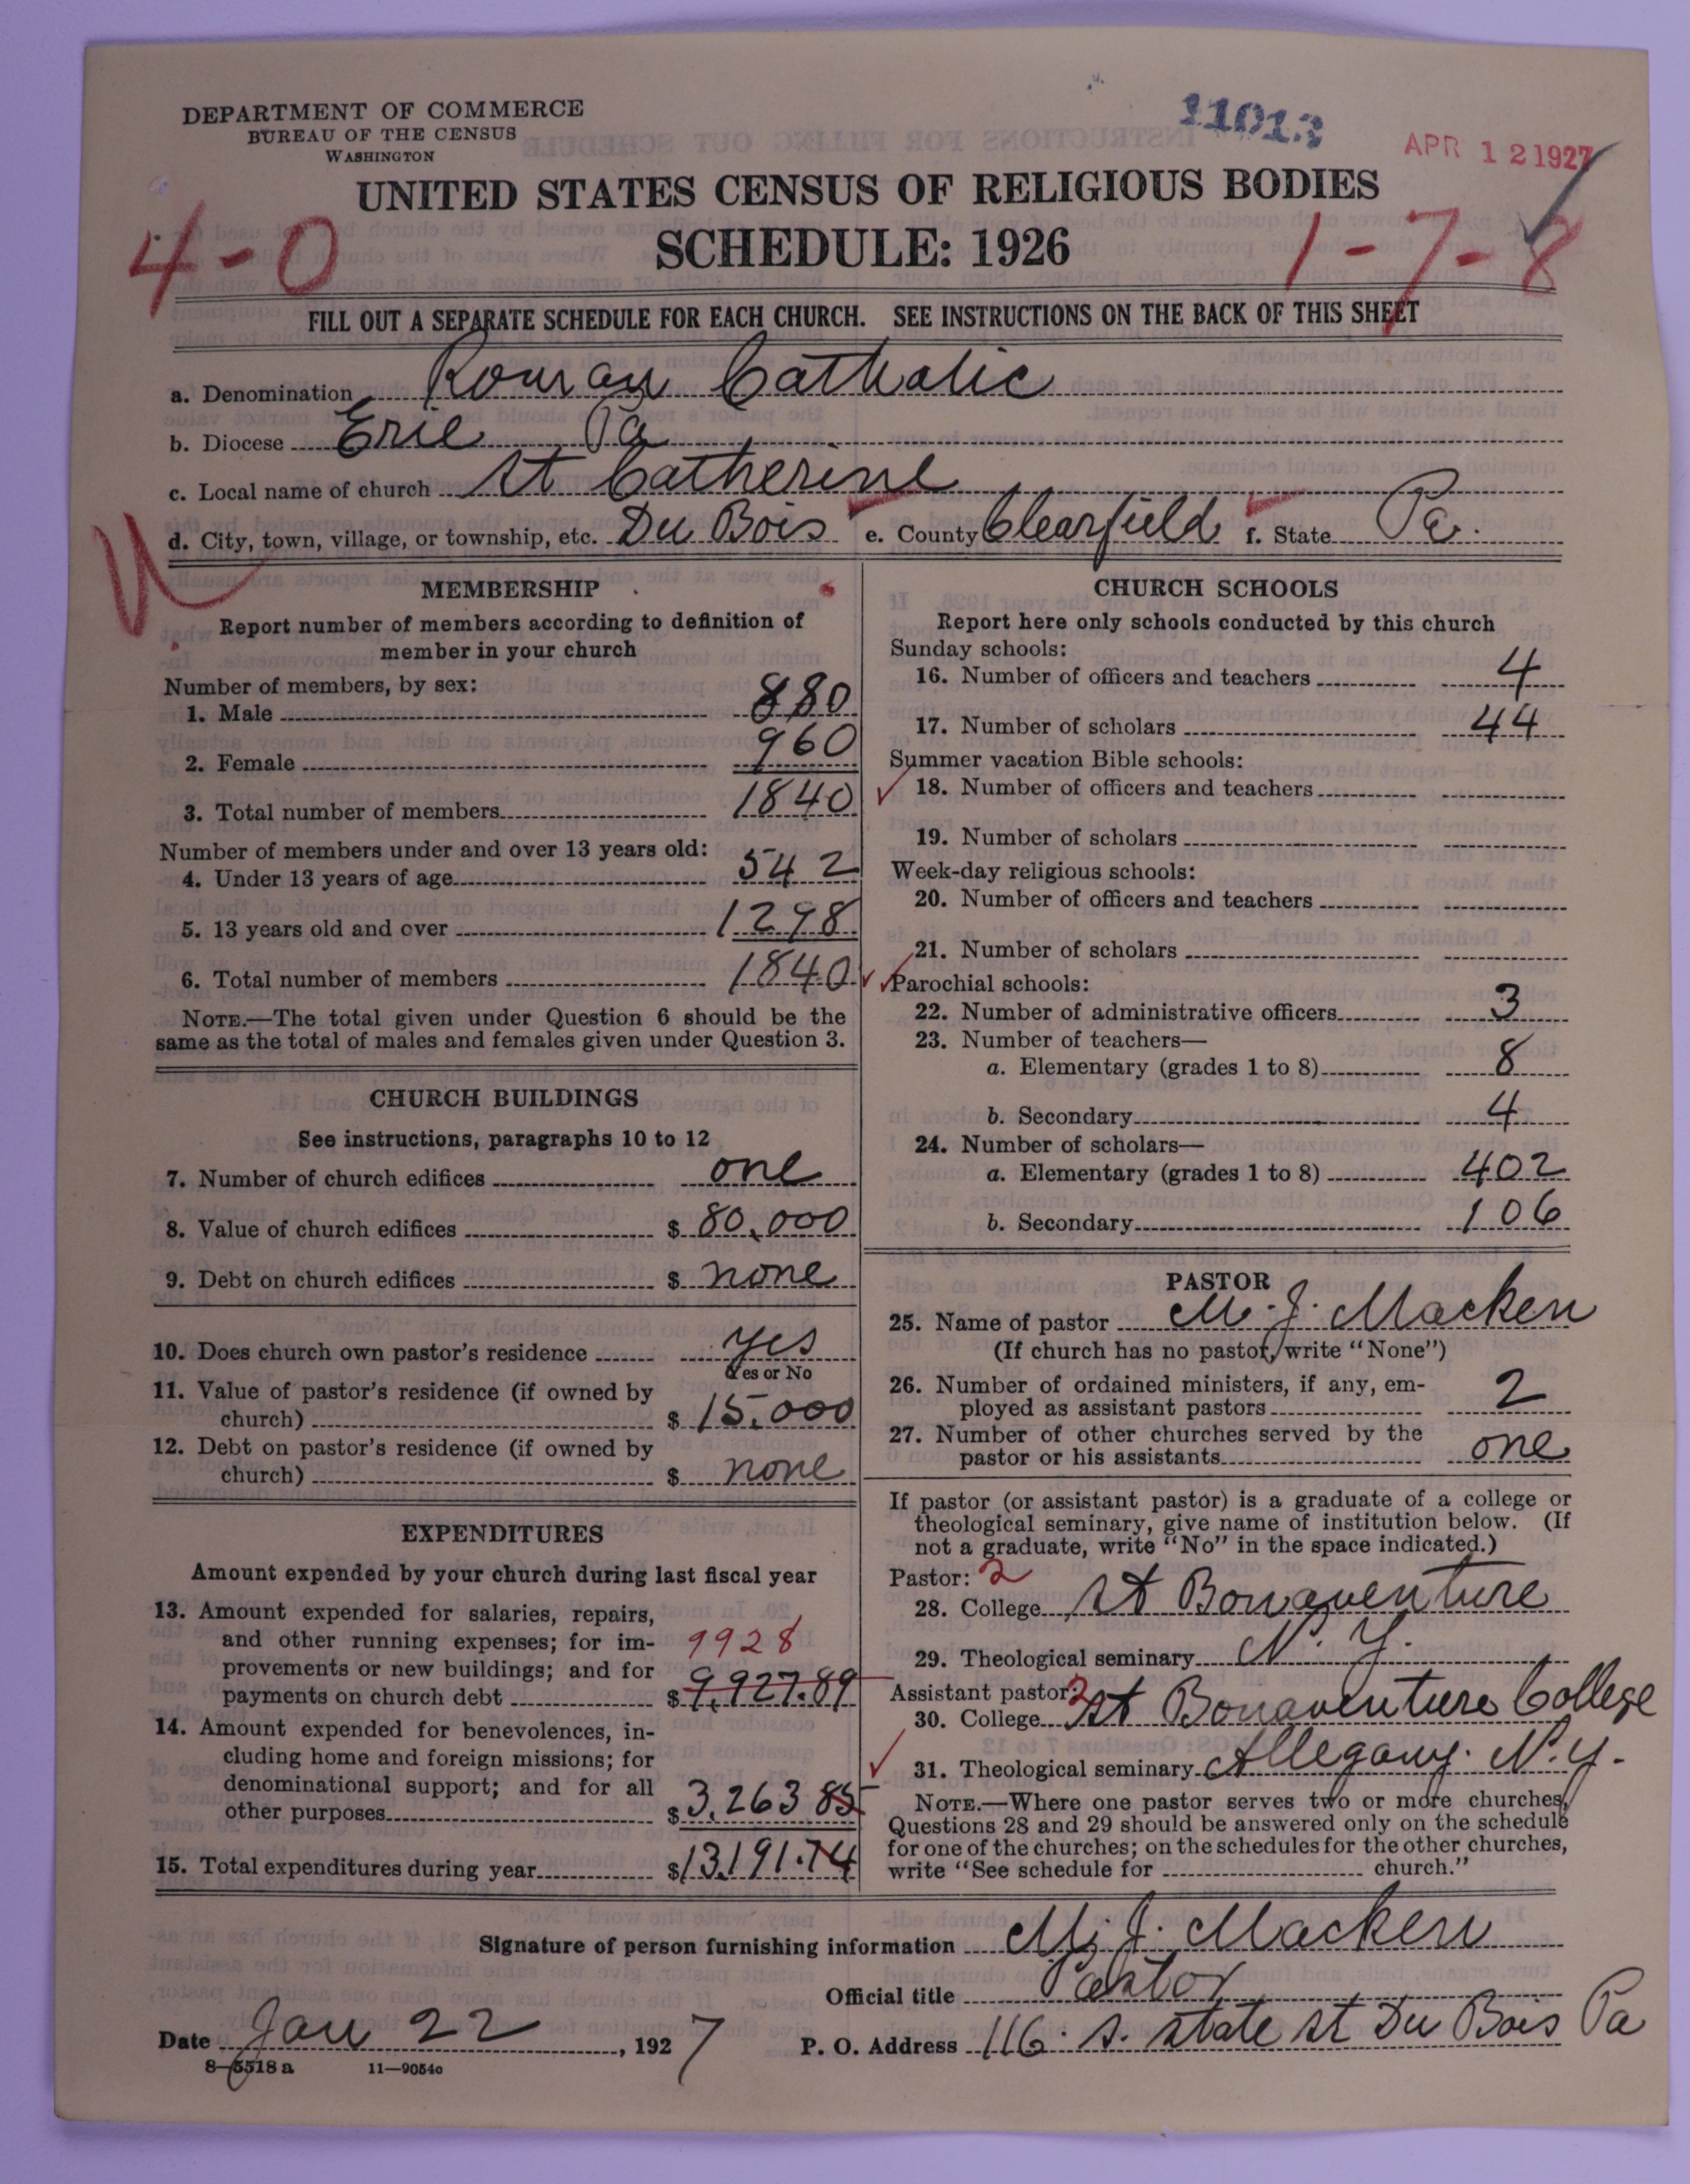 DEPARTMENT OF COMMERCE
BUREAU OF THE CENSUS
WASHINGTON
11013
APR 12 1927
UNITED STATES CENSUS OF RELIGIOUS BODIES
SCHEDULE: 1926
4-0
1-7-8
FILL OUT A SEPARATE SCHEDULE FOR EACH CHURCH. SEE INSTRUCTIONS ON THE BACK OF THIS SHEET
a. Denomination Roman Catholic
b. Diocese Erie Pa
c. Local name of church St Catherine
d. City, town, village, or township, etc. Du Bois e. County Clearfield f. State Pa.
MEMBERSHIP
Report number of members according to definition of
member in your church
Number of members, by sex:
1. Male 880
2. Female 960
3. Total number of members 1840
Number of members under and over 13 years old:
4. Under 13 years of age 542
5. 13 years old and over 1298
6. Total number of members 1840
NOTE.—The total given under Question 6 should be the
same as the total of males and females given under Question 3.
CHURCH BUILDINGS
See instructions, paragraphs 10 to 12
7. Number of church edifices one
8. Value of church edifices $ 80,000
9. Debt on church edifices $ none
10. Does church own pastor's residence yes
Yes or No
11. Value of pastor's residence (if owned by
church) $ 15,000
12. Debt on pastor's residence (if owned by
church) $ none
EXPENDITURES
Amount expended by your church during last fiscal year
13. Amount expended for salaries, repairs,
and other running expenses; for im- 9928
provements or new buildings; and for
payments on church debt $ 9,927.89
14. Amount expended for benevolences, in-
cluding home and foreign missions; for
denominational support; and for all
other purposes $ 3,263 85
15. Total expenditures during year $ 13,191.74
CHURCH SCHOOLS
Report here only schools conducted by this church
Sunday schools:
16. Number of officers and teachers 4
17. Number of scholars 44
Summer vacation Bible schools:
18. Number of officers and teachers
19. Number of scholars
Week-day religious schools:
20. Number of officers and teachers
21. Number of scholars
Parochial schools:
22. Number of administrative officers 3
23. Number of teachers—
a. Elementary (grades 1 to 8) 8
b. Secondary 4
24. Number of scholars—
a. Elementary (grades 1 to 8) 402
b. Secondary 106
PASTOR
25. Name of pastor M. J. Macken
(If church has no pastor, write "None")
26. Number of ordained ministers, if any, em-
ployed as assistant pastors 2
27. Number of other churches served by the
pastor or his assistants one
If pastor (or assistant pastor) is a graduate of a college or
theological seminary, give name of institution below. (If
not a graduate, write "No" in the space indicated.)
Pastor: 2
28. College St Bonaventure
29. Theological seminary N. Y.
Assistant pastor: 2
30. College St Bonaventure College
31. Theological seminary Allegany. N.Y.
NOTE.—Where one pastor serves two or more churches,
Questions 28 and 29 should be answered only on the schedule
for one of the churches; on the schedules for the other churches,
write "See schedule for church."
Signature of person furnishing information M. J. Macken
Official title Pastor
Date Jan 22, 1927 P. O. Address 116. S. State St Du Bois Pa
8—5518 a 11—9054c